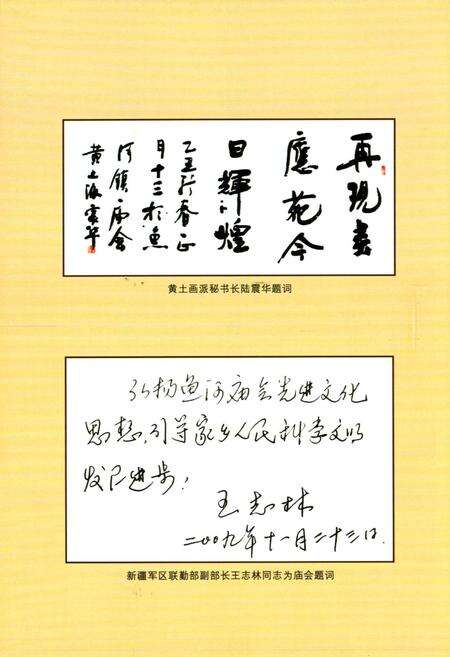 再现书
應苑今
日輝煌
乙丑新春正
月十三於魚
河镇庙会
黄土派震华
黄土画派秘书长陆震华题词
弘扬鱼河庙会先进文化
思想，引导家乡人民科学文明
发展进步！
王志林
二00九年十一月二十三日
新疆军区联勤部副部长王志林同志为庙会题词